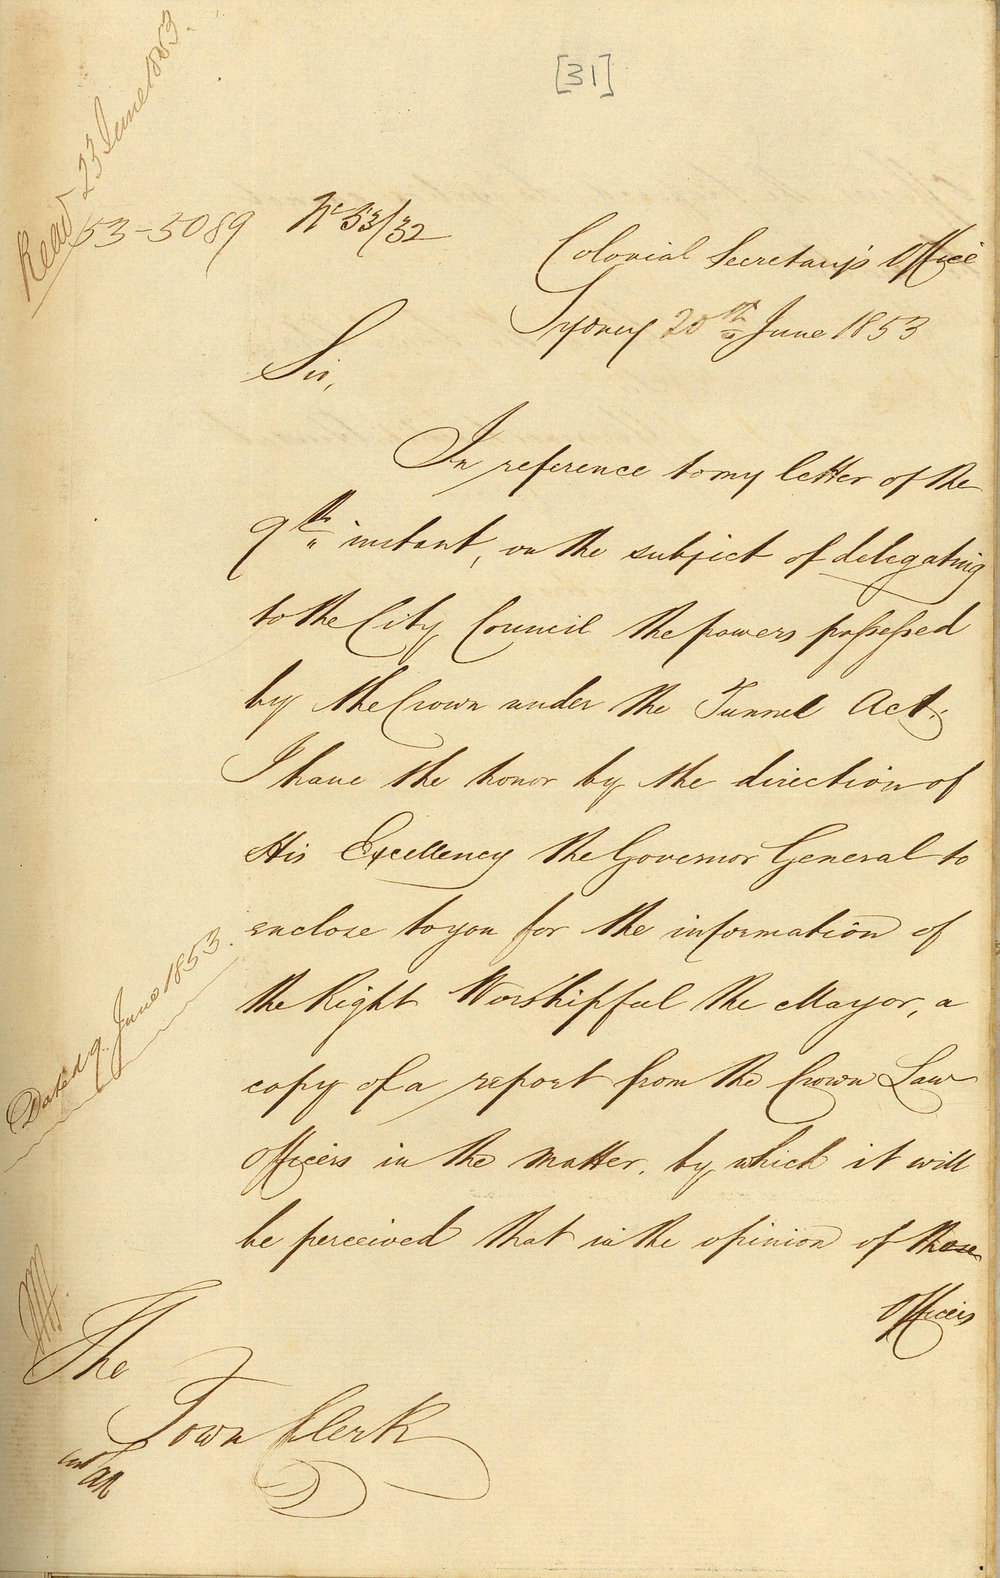 [31]
Read 23 June 1853.
53-5089
No 53/32
Colonial Secretary's Office
Sydney 20th June 1853
Sir,
In reference to my letter of the
9th instant, on the subject of delegating
to the City Council the powers possessed
by the Crown under the Tunnel Act;
I have the honor by the direction of
His Excellency the Governor General to
enclose to you for the information of
the Right Worshipful the Mayor, a
copy of a report from the Crown Law
Officers in the matter, by which it will
be perceived that in the opinion of those
Officers
Dated 9. June 1853.
The
Town Clerk